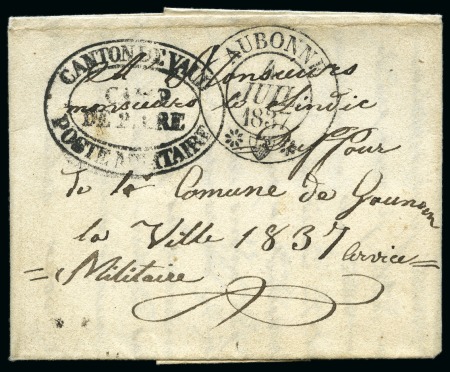 CANTON DE VAUD
CAMP
DE BIERE
POSTE MILITAIRE
AUBONNE
JUIL
1837
A Monsieurs
monsieurs le Sindic
Duffour
De la Comune de
la Ville 1837
= Militaire Service =